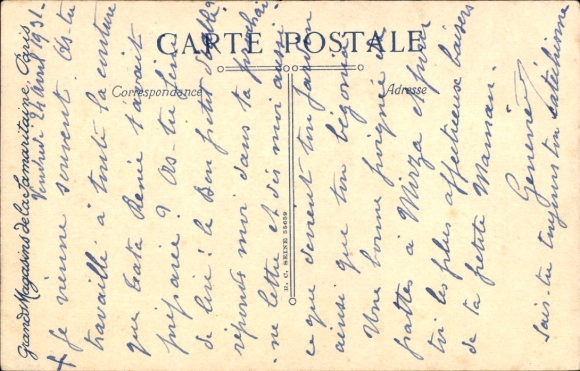 CARTE POSTALE
Correspondance
Adresse
Grands Magasins de la Samaritaine, Paris
R. C. SEINE 55659
Vendredi 24 avril 1931.
+ je vienne souvent. As-tu
travaillé à toute la couture
que Tata Renée t'avait
préparée ? As-tu fini
de lire : le Bon petit diable ?
réponds moi dans ta prochai-
ne lettre et dis moi aussi
ce que devient ton jardin
ainsi que ton bégonia.
Une bonne poignée de
pattes à Mirza et pour
toi les plus affectueux baisers
de ta petite Maman.
Geneviève
sais-tu toujours ton